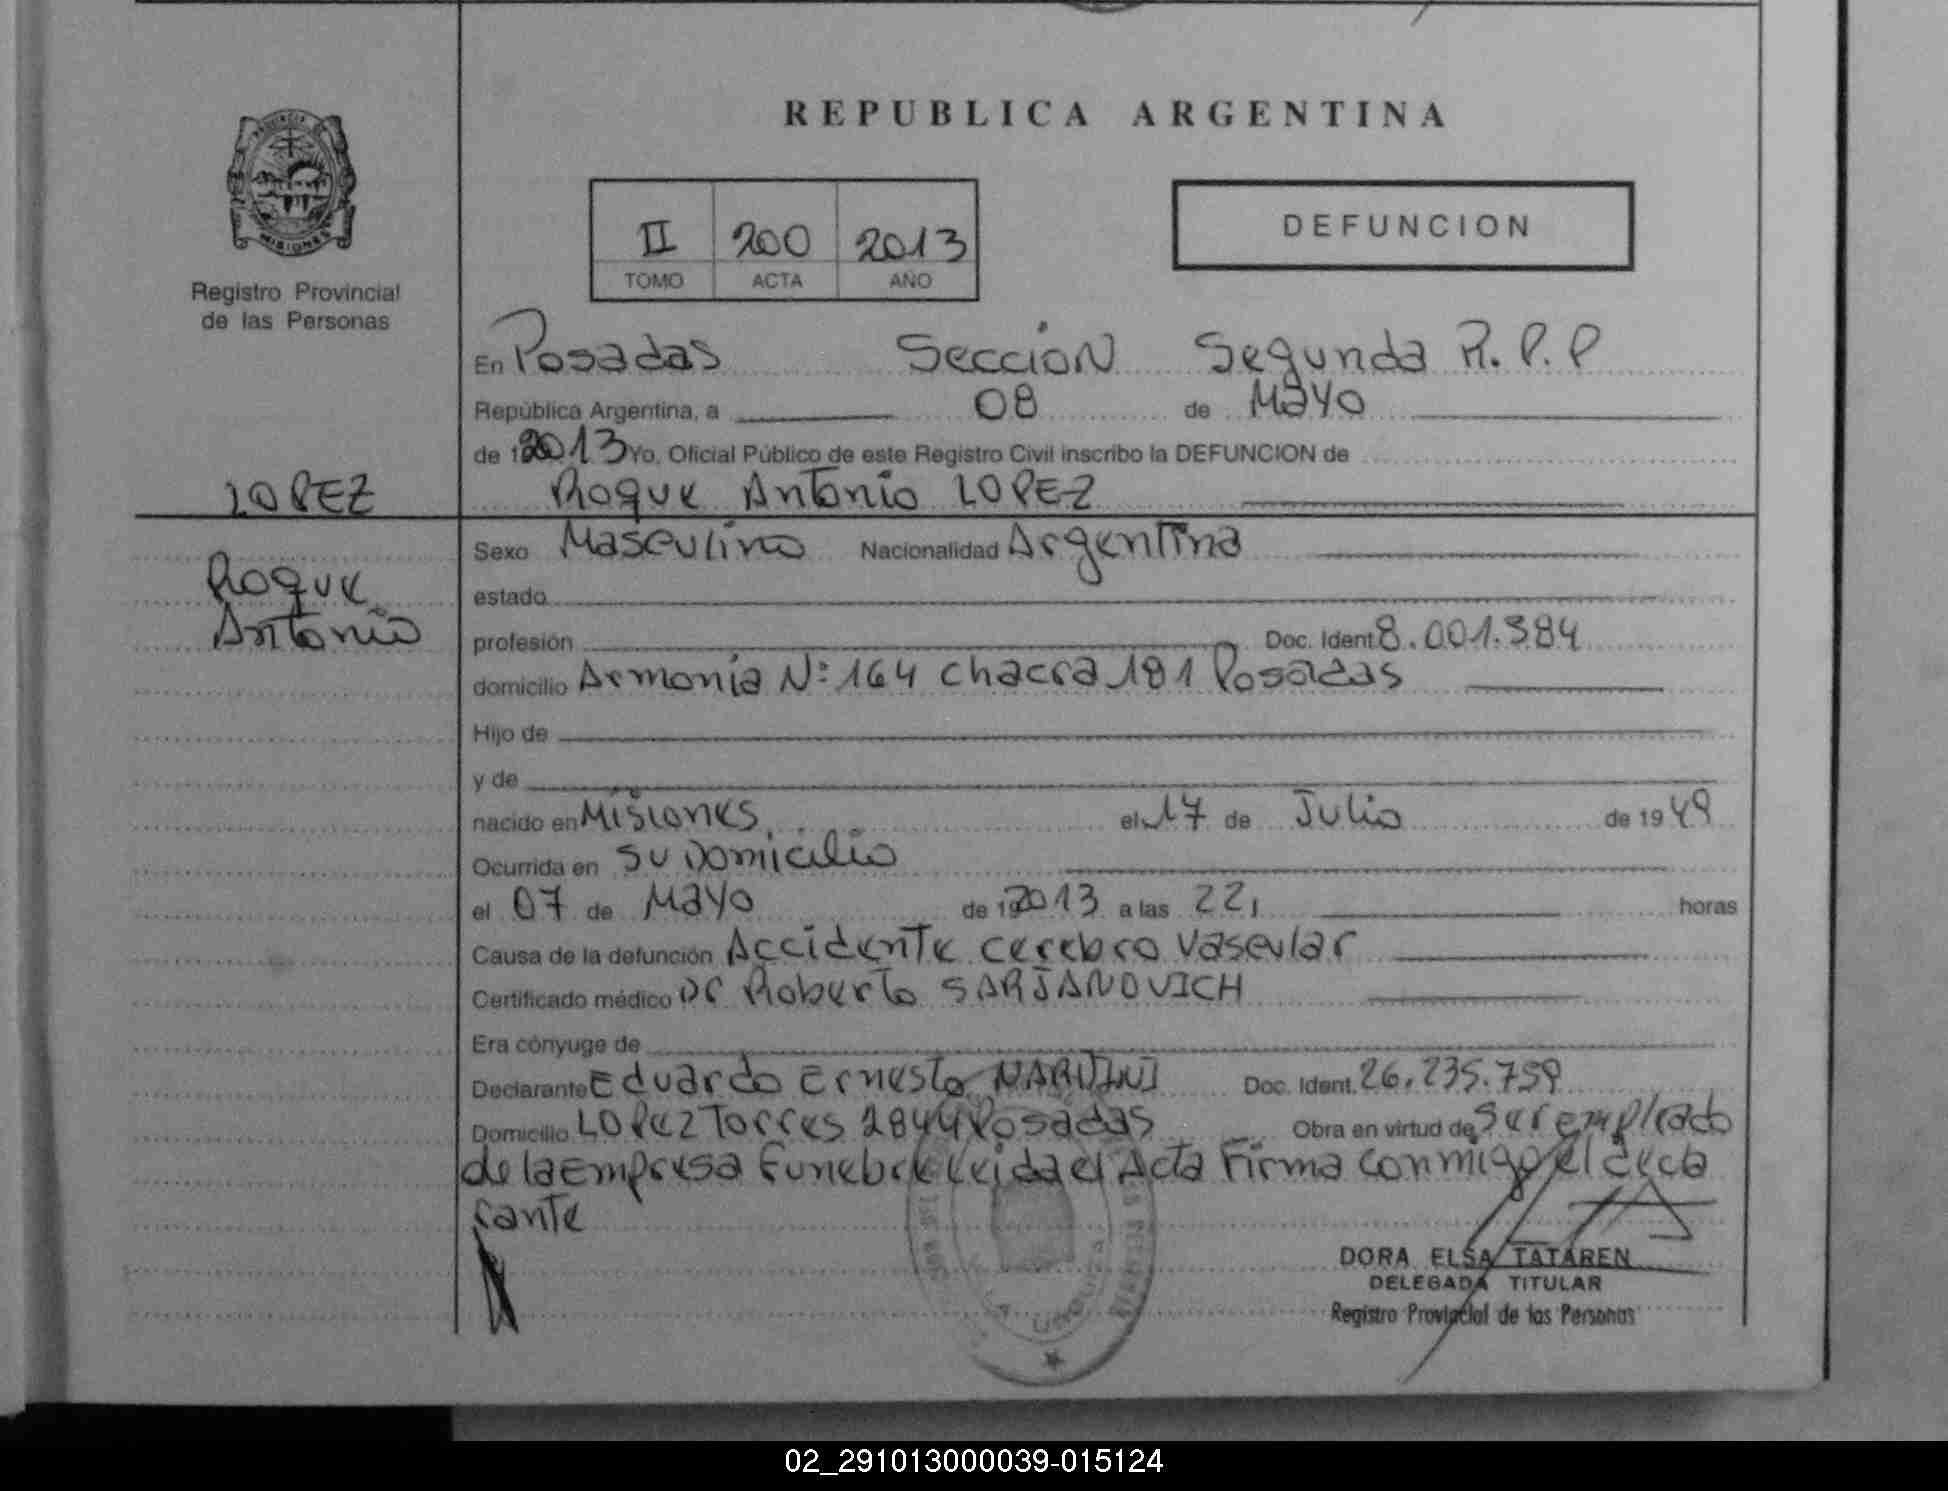 REPUBLICA ARGENTINA
PROVINCIA DE
MISIONES
Registro Provincial
de las Personas
II 200 2013
TOMO ACTA AÑO
DEFUNCION
En Posadas Sección Segunda R.P.P
República Argentina, a 08 de Mayo
de 2013 Yo, Oficial Público de este Registro Civil inscribo la DEFUNCION de
LOPEZ
Roque Antonio LOPEZ
Roque
Antonio
Sexo Masculino Nacionalidad Argentina
estado
profesión Doc. Ident 8.001.384
domicilio Armonía N: 164 chacra 181 Posadas
Hijo de
y de
nacido en Misiones el 17 de Julio de 1949
Ocurrida en su Domicilio
el 07 de Mayo de 2013 a las 22, horas
Causa de la defunción Accidente cerebro vascular
Certificado médico Dr Roberto SARJANOVICH
Era cónyuge de
Declarante Eduardo Ernesto Doc. Ident. 26.235.759
Domicilio LOPEZ Torres 2844 Posadas Obra en virtud de ser empleado
de la Empresa Funebre Leida el Acta Firma conmigo el decla
rante
DORA ELSA TATAREN
DELEGADA TITULAR
Registro Provincial de las Personas
02_291013000039-015124